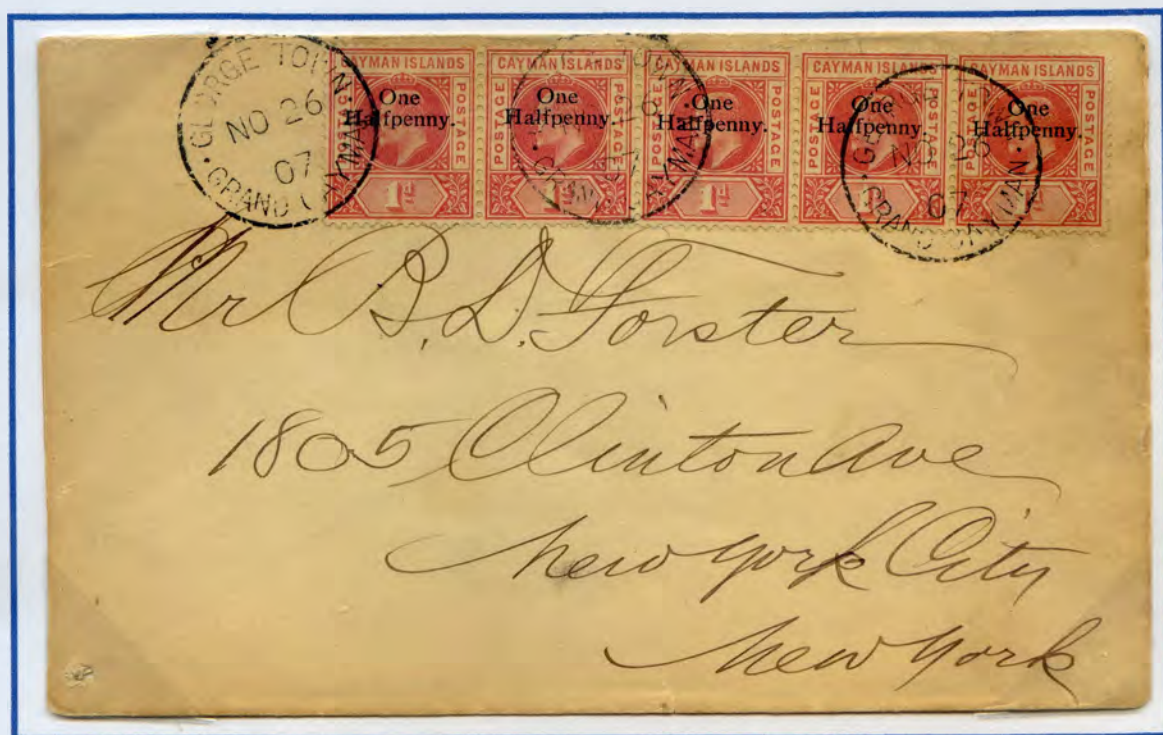 GEORGE TOWN
NO 26
07
GRAND CAYMAN
CAYMAN ISLANDS
POSTAGE POSTAGE
One
Halfpenny.
1d
CAYMAN ISLANDS
POSTAGE POSTAGE
One
Halfpenny.
1d
CAYMAN ISLANDS
POSTAGE POSTAGE
One
Halfpenny.
1d
CAYMAN ISLANDS
POSTAGE POSTAGE
One
Halfpenny.
1d
CAYMAN ISLANDS
POSTAGE POSTAGE
One
Halfpenny.
1d
TOWN
26
07
GRAND CAYMAN
GEORGE TOWN
NO 26
07
GRAND CAYMAN
Mr B. D. Forster
1805 Clinton Ave
New York City
New York